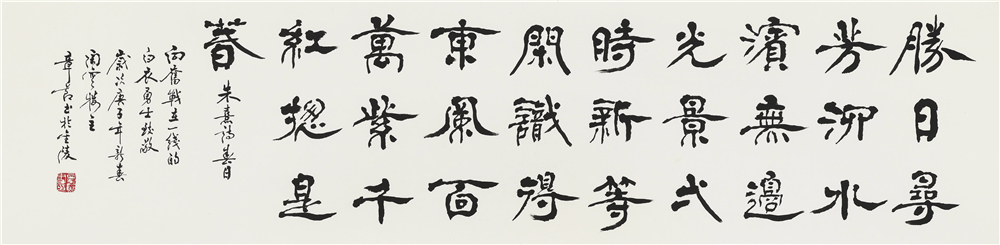 勝日尋
芳泗水
濱無邊
光景弌
時新等
閑識得
東風面
萬紫千
紅總是
春
朱熹詩春日
向奮戰在一線的
白衣勇士致敬
歲次庚子年新春
樓主
書於金陵